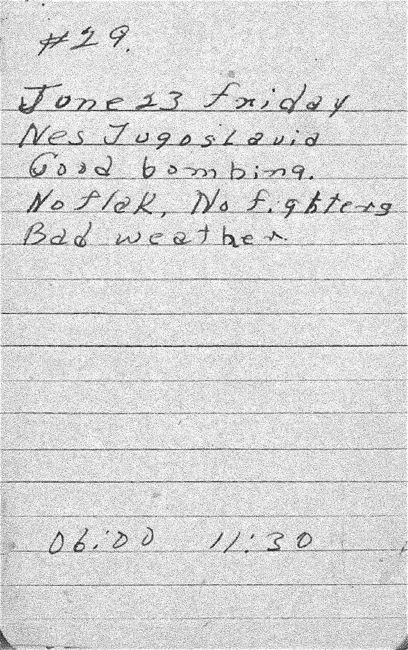 #29.
June 23 friday
Nes Jugoslavia
Good bombing.
No flak, No fighters
Bad weather.
06:00 11:30